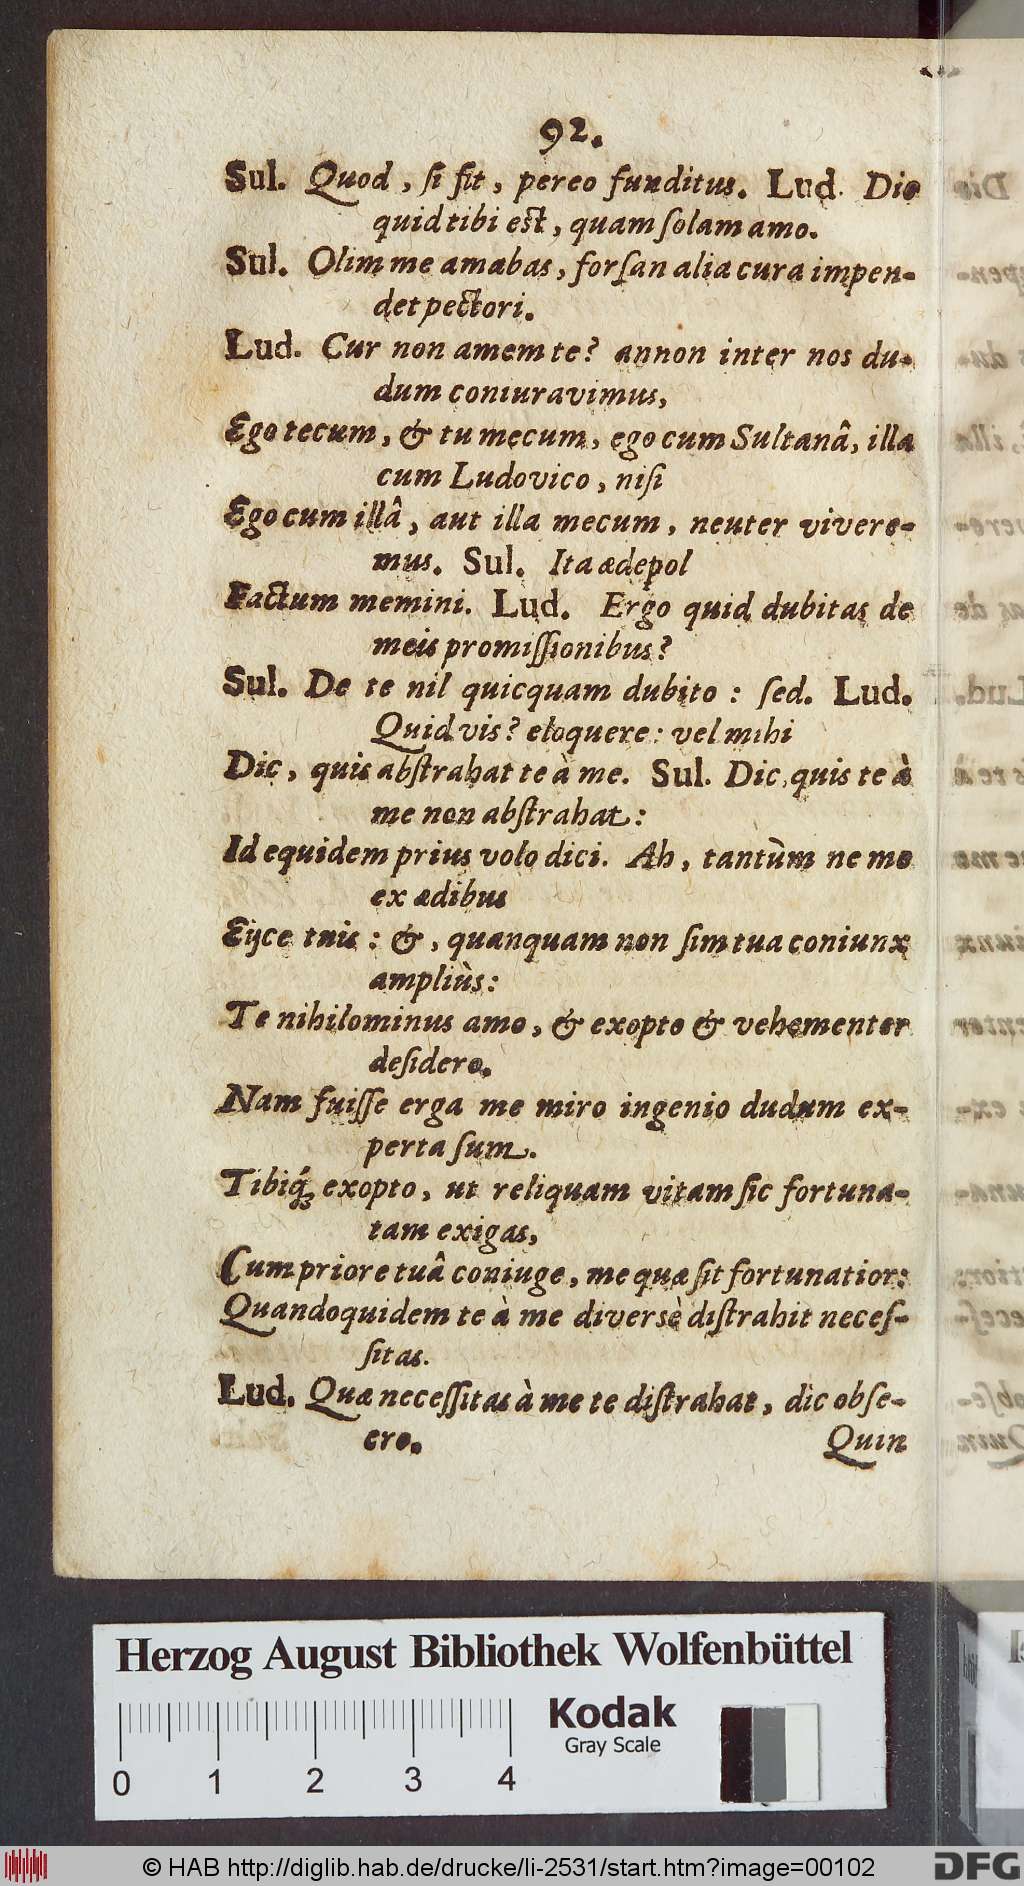 92.
Sul. Quod, ſi ſit, pereo funditus. Lud. Dic
quid tibi est, quam ſolam amo.
Sul. Olim me amabas, forſan alia cura impen-
det pectori.
Lud. Cur non amem te? annon inter nos du-
dum coniuravimus,
Ego tecum, & tu mecum, ego cum Sultanâ, illa
cum Ludovico, niſi
Ego cum illâ, aut illa mecum, neuter vivere-
mus. Sul. Ita ædepol
Factum memini. Lud. Ergo quid dubitas de
meis promiſſionibus?
Sul. De te nil quicquam dubito: ſed. Lud.
Quid vis? eloquere: vel mihi
Dic, quis abſtrahat te à me. Sul. Dic, quis te à
me non abſtrahat:
Id equidem prius volo dici. Ah, tantùm ne me
ex ædibus
Eijce tuis: &, quanquam non ſim tua coniunx
ampliùs:
Te nihilominus amo, & exopto & vehementer
deſidero.
Nam fuiſſe erga me miro ingenio dudum ex-
perta ſum.
Tibiq́; exopto, ut reliquam vitam ſic fortuna-
tam exigas,
Cum priore tuâ coniuge, me quæ ſit fortunatior:
Quandoquidem te à me diversè diſtrahit neceſ-
ſitas.
Lud. Quæ neceſſitas à me te diſtrahat, dic obſe-
cro.
Quin
Herzog August Bibliothek Wolfenbüttel
Kodak
Gray Scale
0 1 2 3 4
© HAB http://diglib.hab.de/drucke/li-2531/start.htm?image=00102
DFG